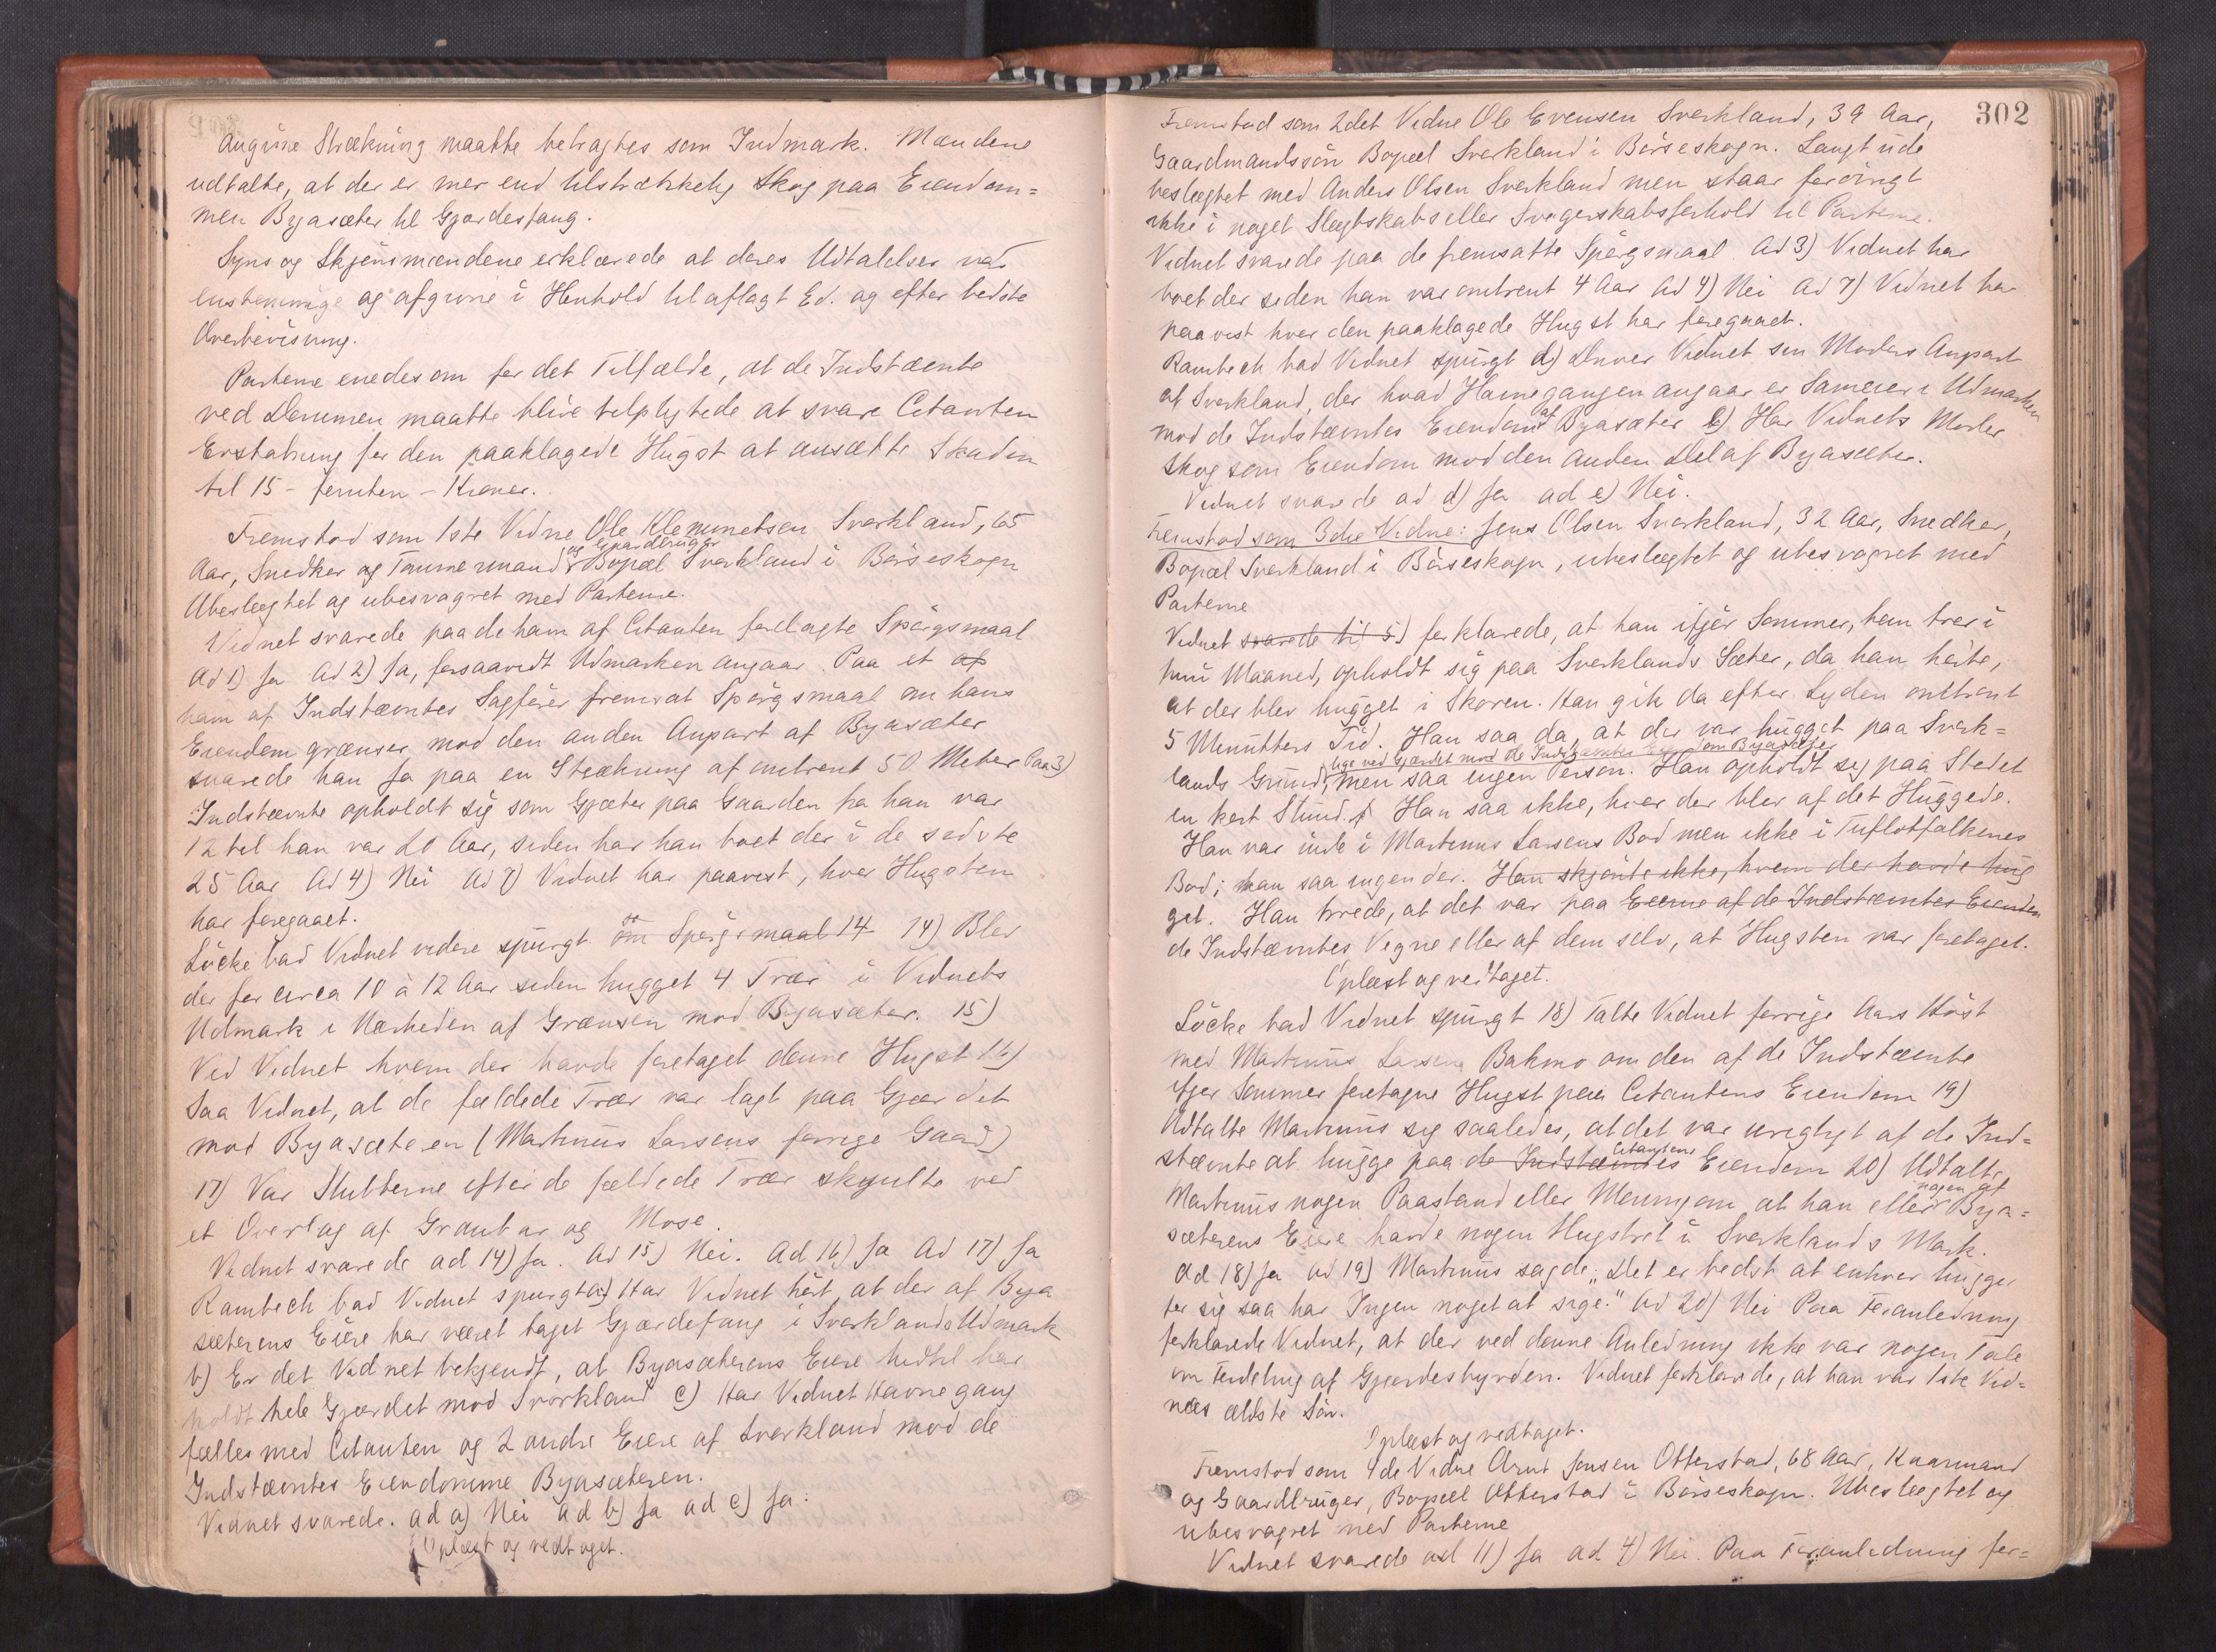 Angivne Strækning maatte betragtes som Indmark. Mændene
udtalte, at der er mer end tilstrækkelig Skog paa Eiendom=
men Byasæter til Gjærdesfang.
Syns og Skjønsmændene erklærede at deres Udtalelser var
enstemmige og afgivne i Henhold til aflagt Ed. og efter bedste
Overbevisning.
Parterne enedes om for det Tilfælde, at de Indstævnte
ved Dommen maatte blive tilpligtede at svare Citanten
Erstatning for den paaklagede Hugst at ansætte Skaden
til 15 - femten - Kroner.
Fremstod som 1ste Vidne Ole Klemmetsen Sverkland, 65
Aar, Snedker og Tømmermand og Gaardbruger Bopæl Sverkland i Børseskogn
Ubeslegtet og ubesvogret med Parterne.
Vidnet svarede paa de ham af Citanten forelagte Spørgsmaal
Ad 1) Ja Ad 2) Ja, forsaavidt Udmarken angaar. Paa et af
ham af Indstævntes Sagfører fremsat Spørgsmaal om hans
Eiendom grænser mod den anden Anpart af Byasæter
svarede han Ja paa en Strækning af omtrent 50 Meter Paa 3)
Indstævnte opholdt sig som Gjæter paa Gaarden fra han var
12 til han var 20 Aar, siden har han boet der i de sidste
25 Aar Ad 4) Nei Ad 7) Vidnet har paavist, hvor Hugsten
har foregaaet.
Löcke bad Vidnet videre spurgt om Spørgsmaal 14 14) Blev
der for circa 10 à 12 Aar siden hugget 4 Trær i Vidnets
Udmark i Nærheden af Grænsen mod Byasæter. 15)
Ved Vidnet hvem der havde foretaget denne Hugst 16)
Saa Vidnet, at de fældede Trær var lagt paa Gjærdet
mod Byasæteren (Martinus Larsens forrige Gaard)
17) Var Stubberne efter de fældede Trær skjulte ved
et Overlag af Granbar og Mose.
Vidnet svarede ad 14) Ja. Ad 15) Nei. Ad 16) Ja Ad 17) Ja
Rambech bad Vidnet spurgt a) Har Vidnet hört, at der af Bya
sæterens Eiere har været taget Gjærdefang i Sverklands Udmark
b) Er det Vidnet bekjendt, at Byasæterens Eiere hidtil har
holdt hele Gjærdet mod Sverkland c) Har Vidnet Havnegang
fælles med Citanten og 2 andre Eiere af Sverkland mod de
Indstævntes Eiendomme Byasæteren.
Vidnet svarede. ad a) Nei ad b) Ja ad c) Ja.
Oplæst og vedtaget.
302
Fremstod som 2det Vidne Ole Evensen Sverkland, 39 Aar,
Gaardmandssön Bopæl Sverkland i Börseskogn. Langt ude
beslegtet med Anders Olsen Sverkland men staar forövrigt
ikke i noget Slegtskabs eller Svogerskabsforhold til Parterne.
Vidnet svarede paa de fremsatte Spörgsmaal Ad 3) Vidnet har
boet der siden han var omtrent 4 Aar Ad 4) Nei Ad 7) Vidnet har
paavist hvor den paaklagede Hugst har foregaaet.
Rambech bad Vidnet spurgt d) Driver Vidnet sin Moders Anpart
af Sverkland, der hvad Havnegangen angaar er Sameier i Udmarken
mod de Indstævntes Eiendom af Byasæter e) Har Vidnets Moder
Skog som Eiendom mod den anden Del af Byasæter.
Vidnet svarede ad d) Ja ad e) Nei.
Fremstod som 3die Vidne: Jens Olsen Sverkland, 32 Aar, Snedker,
Bopæl Sverkland i Börseskogn, ubeslegtet og ubesvogret med
Parterne
Vidnet svarede til 5) forklarede, at han ifjör Sommer, han tror i
Juni Maaned, opholdt sig paa Sverklands Sæter, da han hörte,
at der blev hugget i Skoven. Han gik da efter Lyden omtrent
5 Minutters Tid. Han saa da, at der var hugget paa Sverk=
lige ved Gjærdet mod de Indstævntes Eiendom Byasæter
lands Grund, men saa ingen Person. Han opholdt sig paa Stedet
en kort Stund. Han saa ikke, hvor der blev af det Huggede.
Han var inde i Martinus Larsens Bod men ikke i Tuflotfolkenes
Bod; han saa ingen der. Han skjönte ikke, hvem der havde hug
get. Han trode, at det var paa Eierne af de Indstævntes Eiendom
de Indstævntes Vegne eller af dem selv, at Hugsten var foretaget.
Oplæst og vedtaget.
Löcke bad Vidnet spurgt 18) Talte Vidnet forrige Aars Höst
med Martinus Larsen Bakmo om den af de Indstævnte
ifjor Sommer foretagne Hugst paa Citantens Eiendom 19)
Udtalte Martinus sig saaledes, at det var urigtigt af de Ind=
stævnte at hugge paa de Indstævntes Citantens Eiendom 20) Udtalte
Martinus nogen Paastand eller Mening om at han eller nogen af Bya=
sæterens Eiere havde nogen Hugstret i Sverklands Mark.
Ad 18) Ja ad 19) Martinus sagde „Det er bedst at enhver hugger
for sig saa har Ingen noget at sige." Ad 20) Nei Paa Foranledning
forklarede Vidnet, at der ved denne Anledning ikke var nogen Tale
om Fordeling af Gjærdesbyrden. Vidnet forklarede, at han var 1ste Vid=
nes ældste Sön.
Oplæst og vedtaget.
Fremstod som 4de Vidne Arnt Jonsen Otterstad, 68 Aar, Kaarmand
og Gaardbruger, Bopæl Otterstad i Börseskogn. Ubeslegtet og
ubesvogret med Parterne
Vidnet svarede ad 11) Ja ad 4) Nei. Paa Foranledning for=